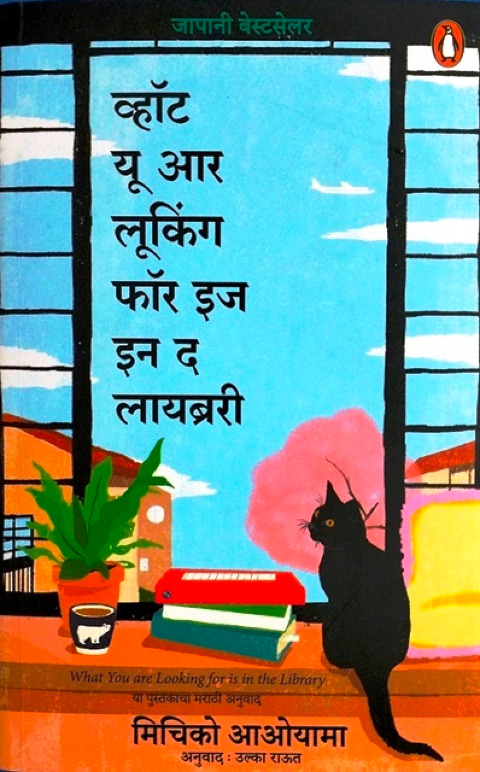 जापानी बेस्टसेलर
व्हॉट
यू आर
लूकिंग
फॉर इज
इन द
लायब्ररी
What You are Looking for is in the Library
या पुस्तकाचा मराठी अनुवाद
मिचिको आओयामा
अनुवाद : उल्का राऊत